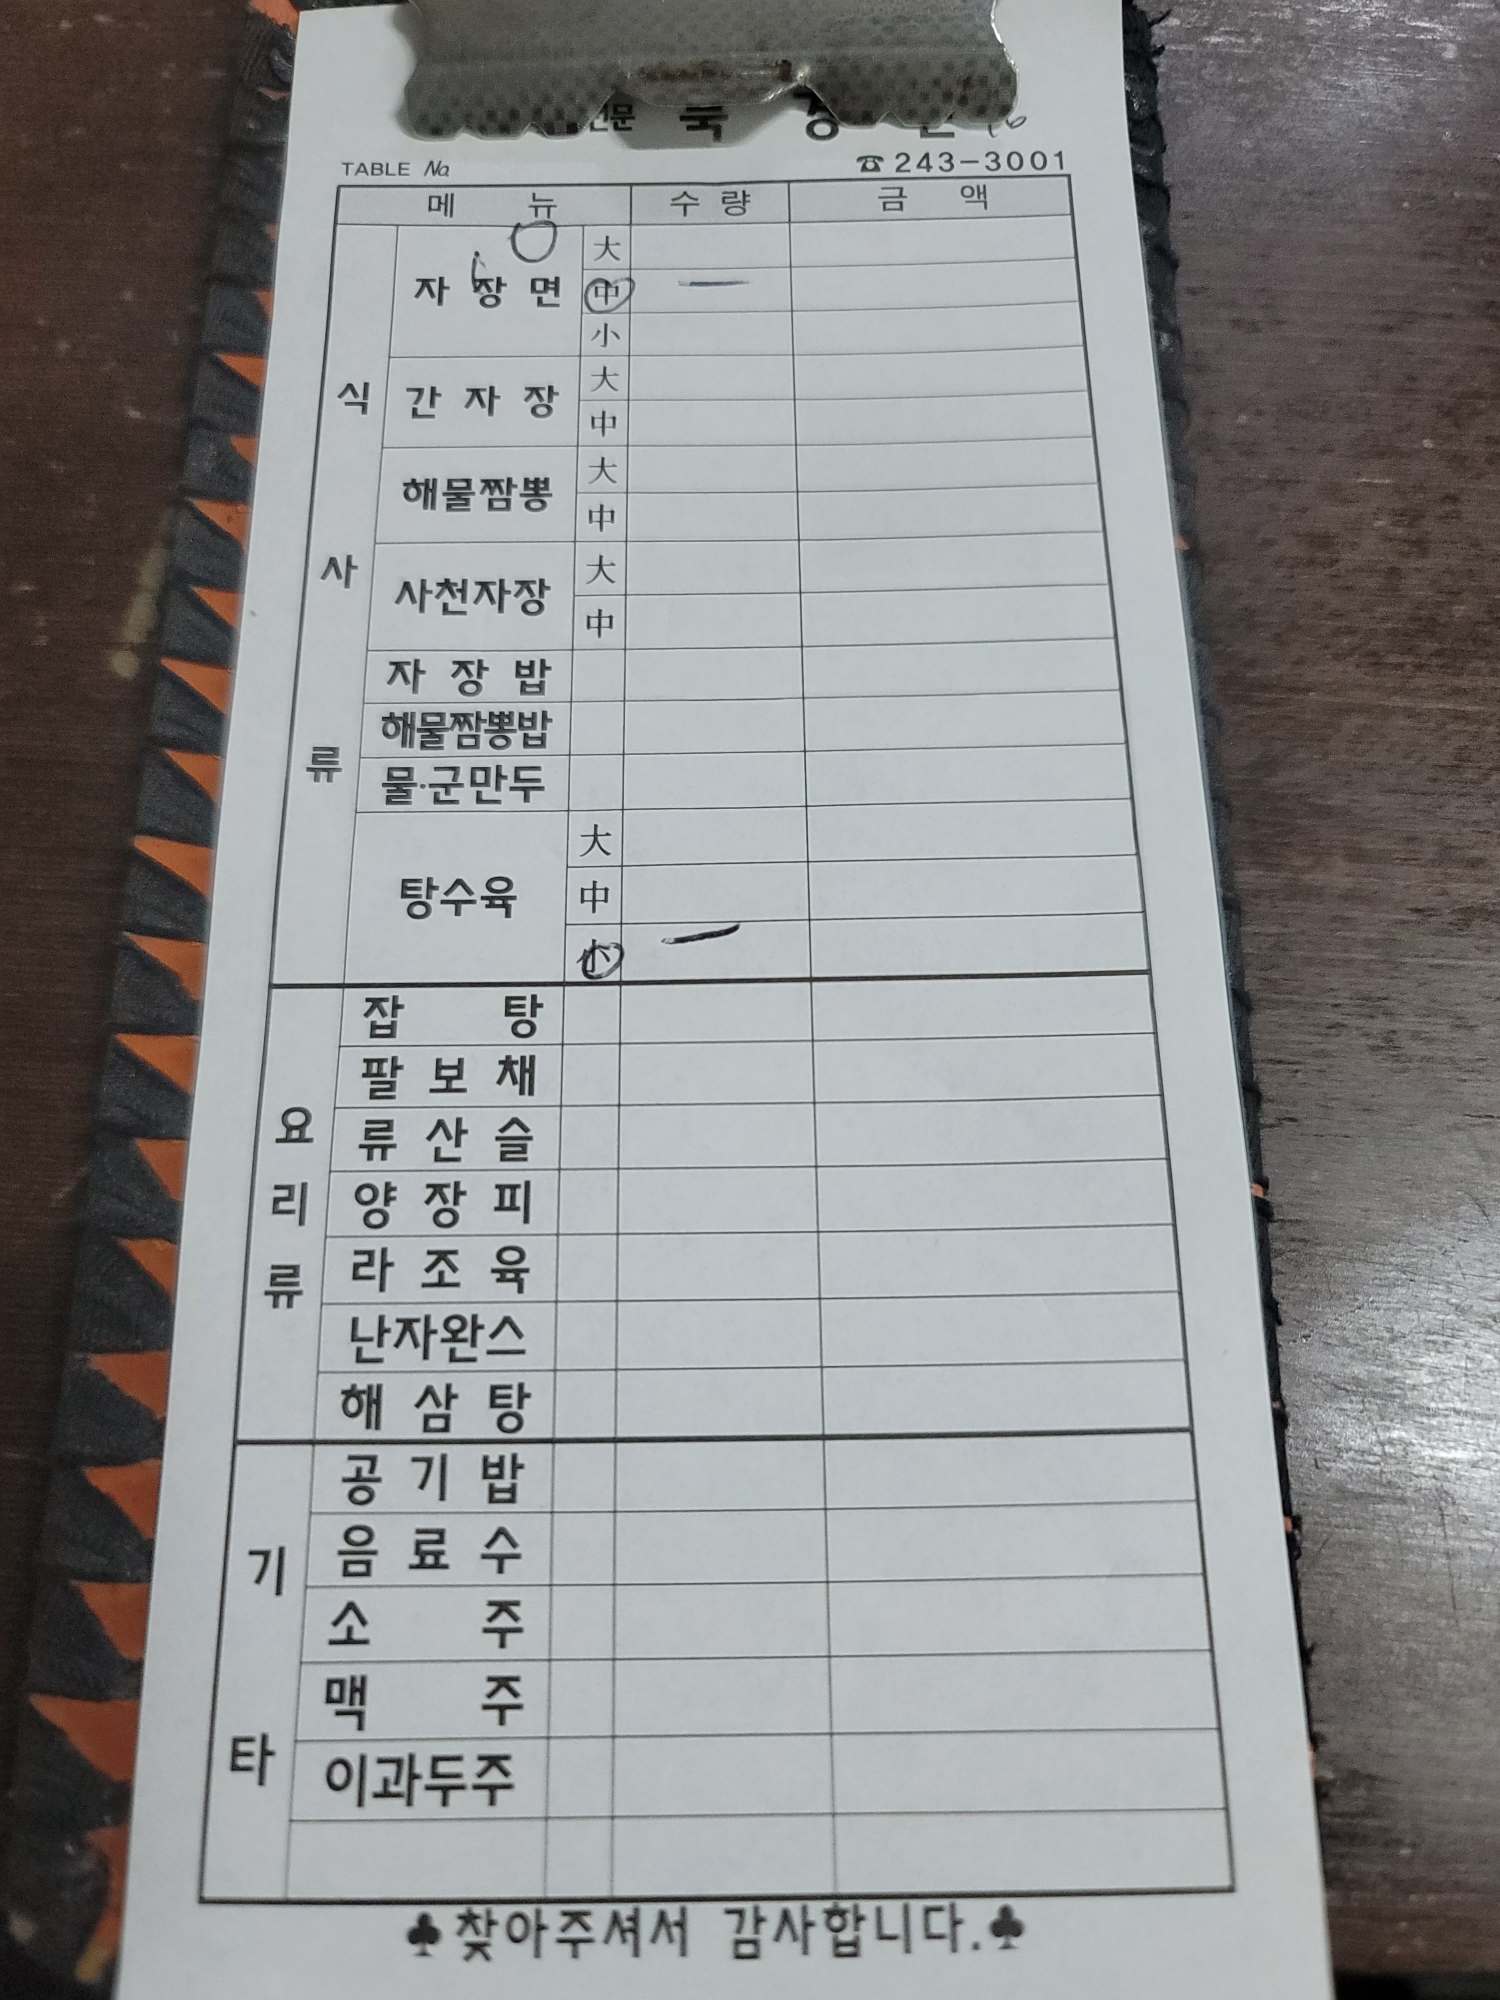 TABLE No
☎243-3001
메 뉴 수 량 금 액
식 사 류
자 장 면 大
中 一
小
간 자 장 大
中
해물짬뽕 大
中
사천자장 大
中
자 장 밥
해물짬뽕밥
물·군만두
탕수육 大
中
小 一
요 리 류
잡 탕
팔 보 채
류 산 슬
양 장 피
라 조 육
난자완스
해 삼 탕
기 타
공 기 밥
음 료 수
소 주
맥 주
이과두주
♣찾아주셔서 감사합니다.♣